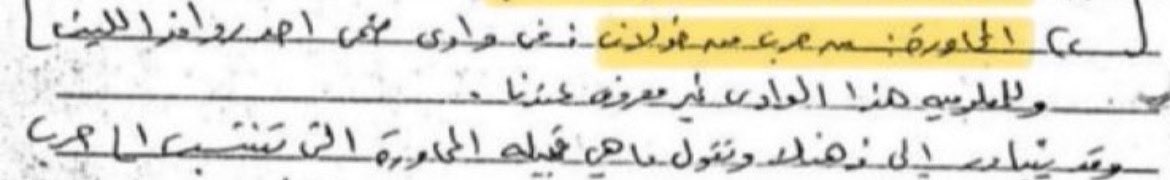 ٢) المحاورة: من حرب من خولان نفى وادى ضخى احد روافد الليث ]
وللعلوميه هذا الوادى غير معروف عندنا .
وقد يتبادر إلى ذهنك وتقول ماهي قبيله المحاورة التى تنتسب إلى حرب